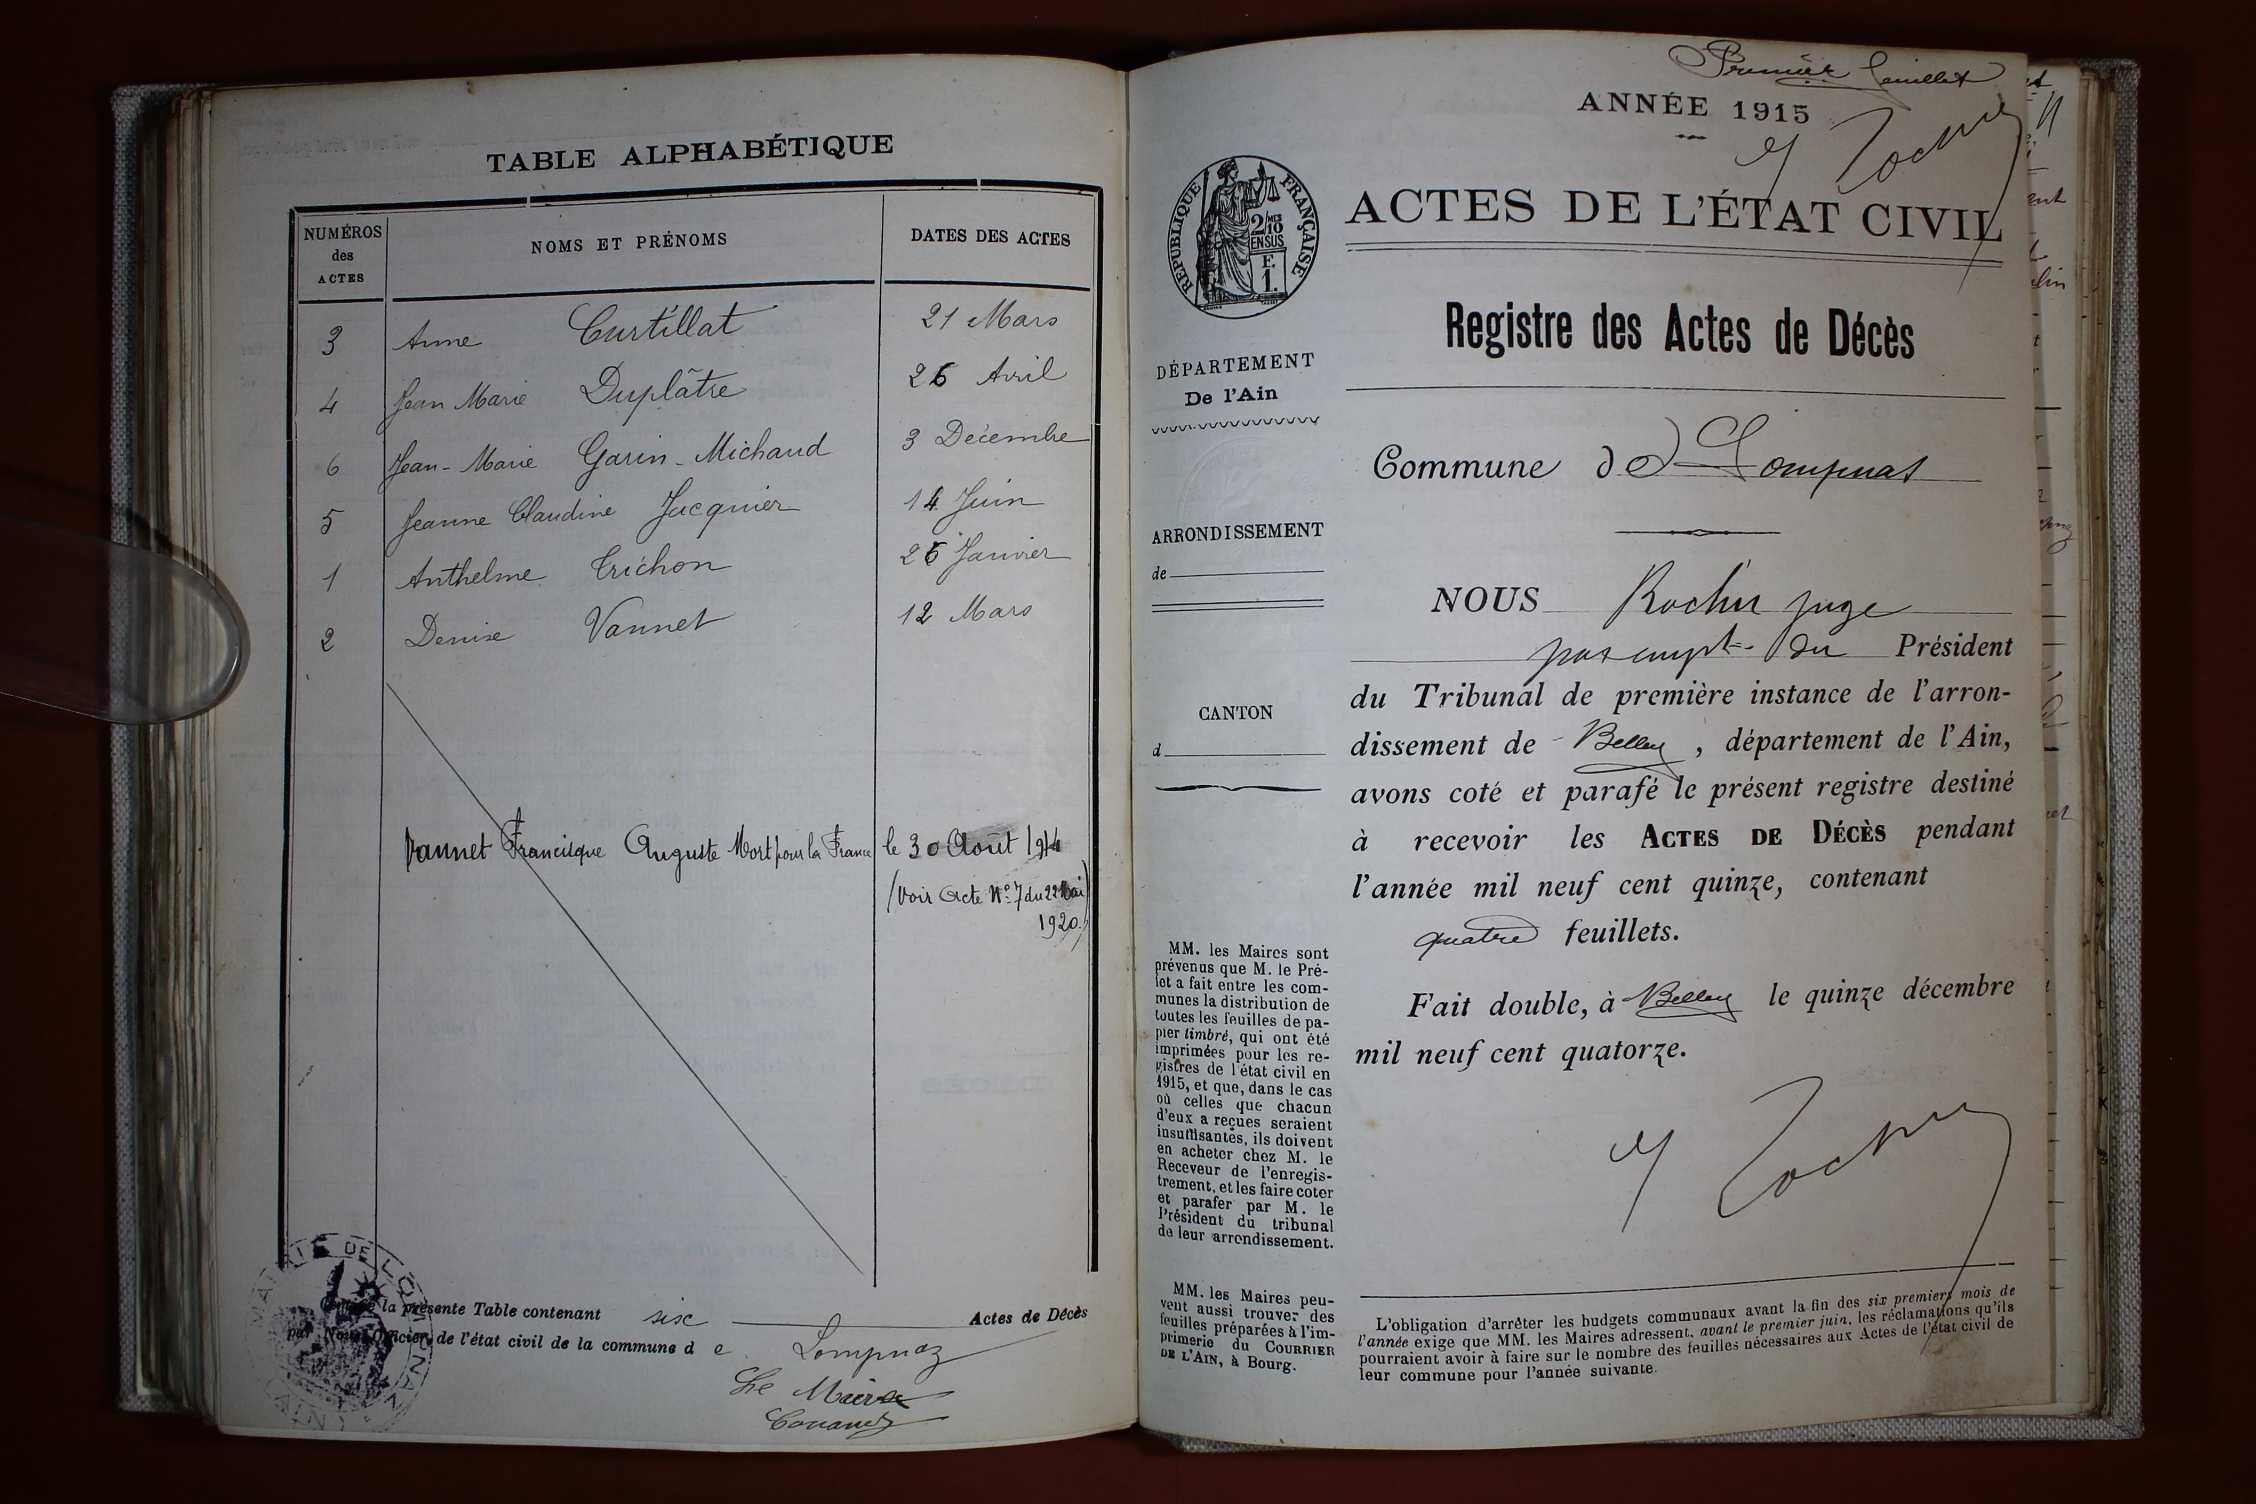 TABLE ALPHABÉTIQUE
NUMÉROS
des
ACTES
NOMS ET PRÉNOMS
DATES DES ACTES
3 Anne Curtillat 21 Mars
4 Jean Marie Duplâtre 26 Avril
6 Jean-Marie Garin-Michaud 3 Décembre
5 Jeanne Claudine Jacquier 14 Juin
1 Anthelme Trichon 26 Janvier
2 Denise Vannet 12 Mars
Vannet Francisque Auguste Mort pour la France le 30 Août 1914
(Voir Acte No 7 du 22 Mai
1920.)
la présente Table contenant six Actes de Décès
par Nous Officier de l'état civil de la commune d e Lompnaz
Le Maire
MAIRIE DE LOMPNAZ
AIN
Premier feuillet
ANNÉE 1915
RÉPUBLIQUE FRANÇAISE
2/10
EN SUS
F.
1.
ACTES DE L'ÉTAT CIVIL
Registre des Actes de Décès
DÉPARTEMENT
De l'Ain
ARRONDISSEMENT
de
CANTON
d
MM. les Maires sont
prévenus que M. le Pré-
fet a fait entre les com-
munes la distribution de
toutes les feuilles de pa-
pier timbré, qui ont été
imprimées pour les re-
gistres de l'état civil en
1915, et que, dans le cas
où celles que chacun
d'eux a reçues seraient
insuffisantes, ils doivent
en acheter chez M. le
Receveur de l'enregis-
trement, et les faire coter
et parafer par M. le
Président du tribunal
de leur arrondissement.
MM. les Maires peu-
vent aussi trouver des
feuilles préparées à l'im-
primerie du COURRIER
DE L'AIN, à Bourg.
Commune de Lompnas
NOUS Rocher juge
par empt. du Président
du Tribunal de première instance de l'arron-
dissement de Belley, département de l'Ain,
avons coté et parafé le présent registre destiné
à recevoir les ACTES DE DÉCÈS pendant
l'année mil neuf cent quinze, contenant
quatre feuillets.
Fait double, à Belley le quinze décembre
mil neuf cent quatorze.
L'obligation d'arrêter les budgets communaux avant la fin des six premiers mois de
l'année exige que MM. les Maires adressent, avant le premier juin, les réclamations qu'ils
pourraient avoir à faire sur le nombre des feuilles nécessaires aux Actes de l'état civil de
leur commune pour l'année suivante.